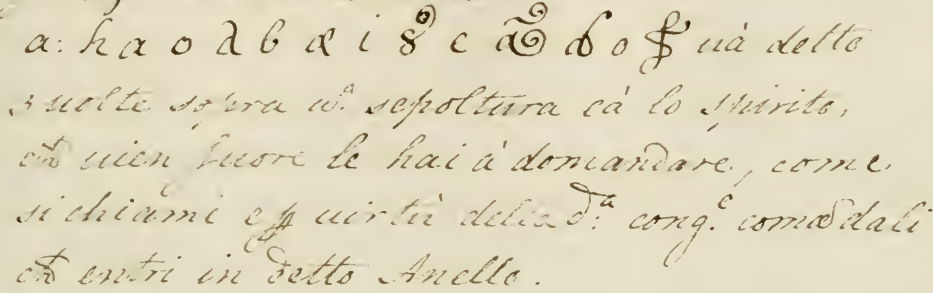 a: h a o d b a i 8 c a d o uà detto
3 uolte sopra ũ sepoltura cà lo spirito,
uien fuore le hai à domandare, come
si chiami e uirtù della d.ª cong.e comãdali
entri in detto Anello.